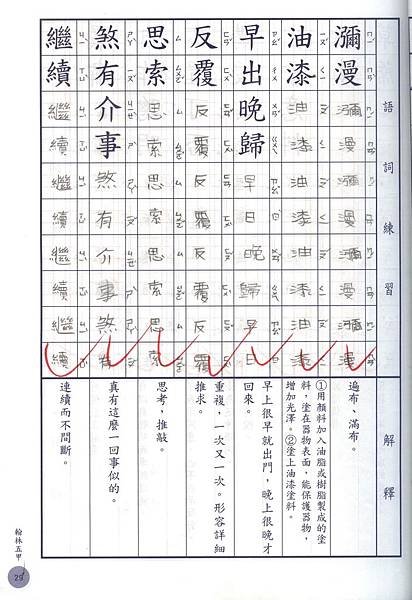 語詞練習
解釋
瀰漫瀰漫瀰漫瀰漫瀰漫
遍布、滿布。
油漆油漆油漆油漆油漆
①用顏料加入油脂或樹脂製成的塗
料，塗在器物表面，能保護器物，
增加光澤。②塗上油漆塗料。
早出晚歸早出晚歸早出
早上很早就出門，晚上很晚才
回來。
反覆反覆反覆反覆反覆
重複，一次又一次。形容詳細
推求。
思索思索思索思索思索
思考，推敲。
煞有介事煞有介事煞有
真有這麼一回事似的。
繼續繼續繼續繼續繼續
連續而不間斷。
翰林五甲
29